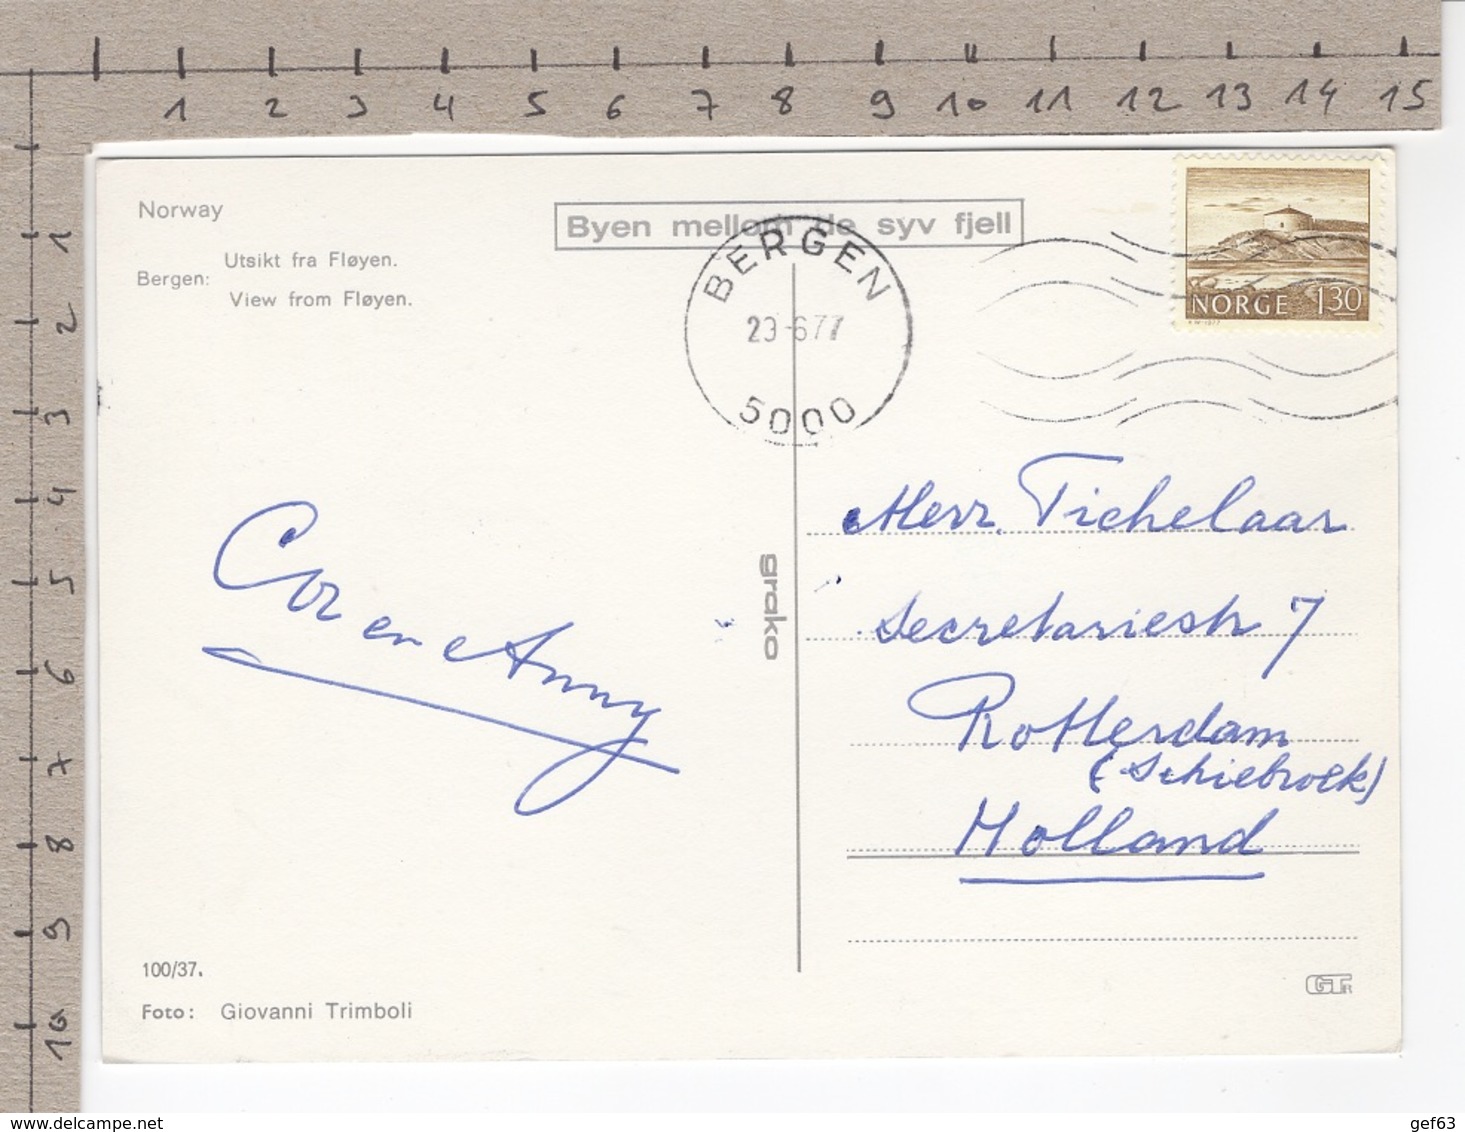 1 2 3 4 5 6 7 8 9 10 11 12 13 14 15
1
2
3
4
5
6
7
8
9
10
Norway
Bergen:
Utsikt fra Fløyen.
View from Fløyen.
Byen mellom de syv fjell
BERGEN
23-6 77
5000
NORGE 1 30
Cor en Anny
grako
Herr Tichelaar
Secretariestr 7
Rotterdam
(Schiebroek)
Holland
100/37.
Foto: Giovanni Trimboli
GT
delcampe.net
gef63